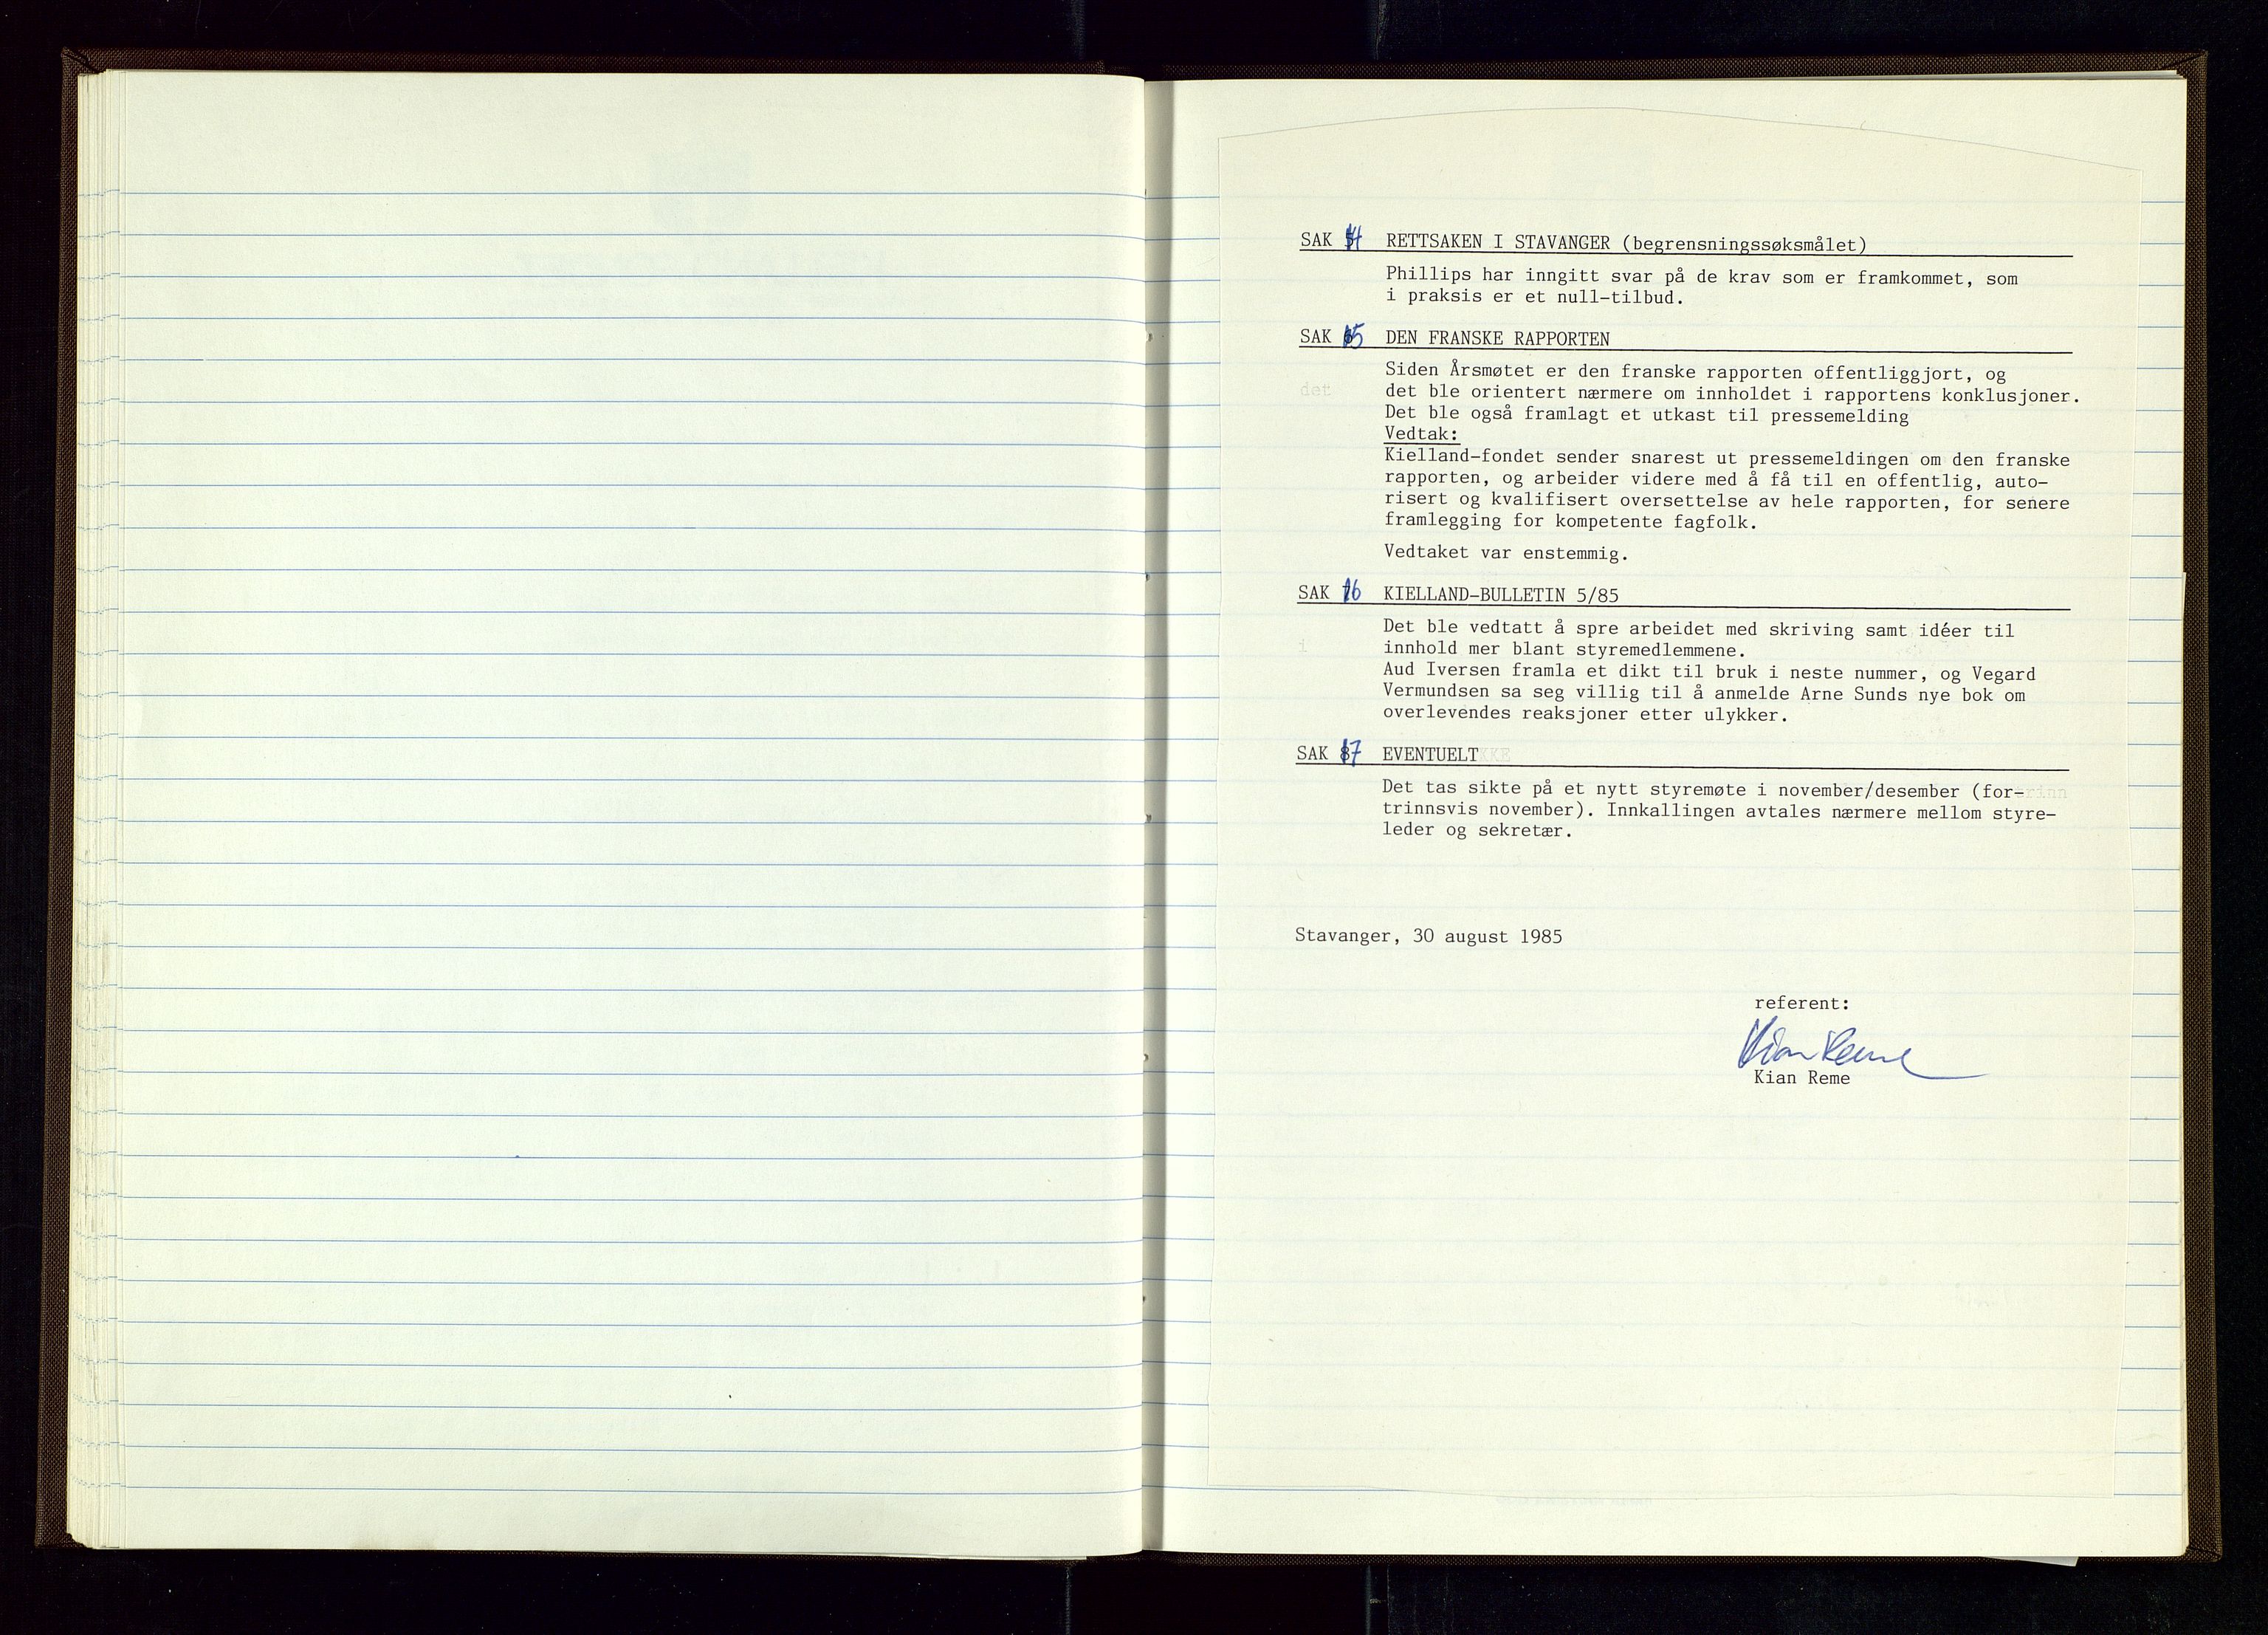 SAK 4 RETTSAKEN I STAVANGER (begrensningssøksmålet)
Phillips har inngitt svar på de krav som er framkommet, som
i praksis er et null-tilbud.
SAK 5 DEN FRANSKE RAPPORTEN
Siden Årsmøtet er den franske rapporten offentliggjort, og
det ble orientert nærmere om innholdet i rapportens konklusjoner.
Det ble også framlagt et utkast til pressemelding
Vedtak:
Kielland-fondet sender snarest ut pressemeldingen om den franske
rapporten, og arbeider videre med å få til en offentlig, auto-
risert og kvalifisert oversettelse av hele rapporten, for senere
framlegging for kompetente fagfolk.
Vedtaket var enstemmig.
SAK 6 KIELLAND-BULLETIN 5/85
Det ble vedtatt å spre arbeidet med skriving samt idéer til
innhold mer blant styremedlemmene.
Aud Iversen framla et dikt til bruk i neste nummer, og Vegard
Vermundsen sa seg villig til å anmelde Arne Sunds nye bok om
overlevendes reaksjoner etter ulykker.
SAK 7 EVENTUELT
Det tas sikte på et nytt styremøte i november/desember (for-
trinnsvis november). Innkallingen avtales nærmere mellom styre-
leder og sekretær.
Stavanger, 30 august 1985
referent:
Kian Reme
Kian Reme